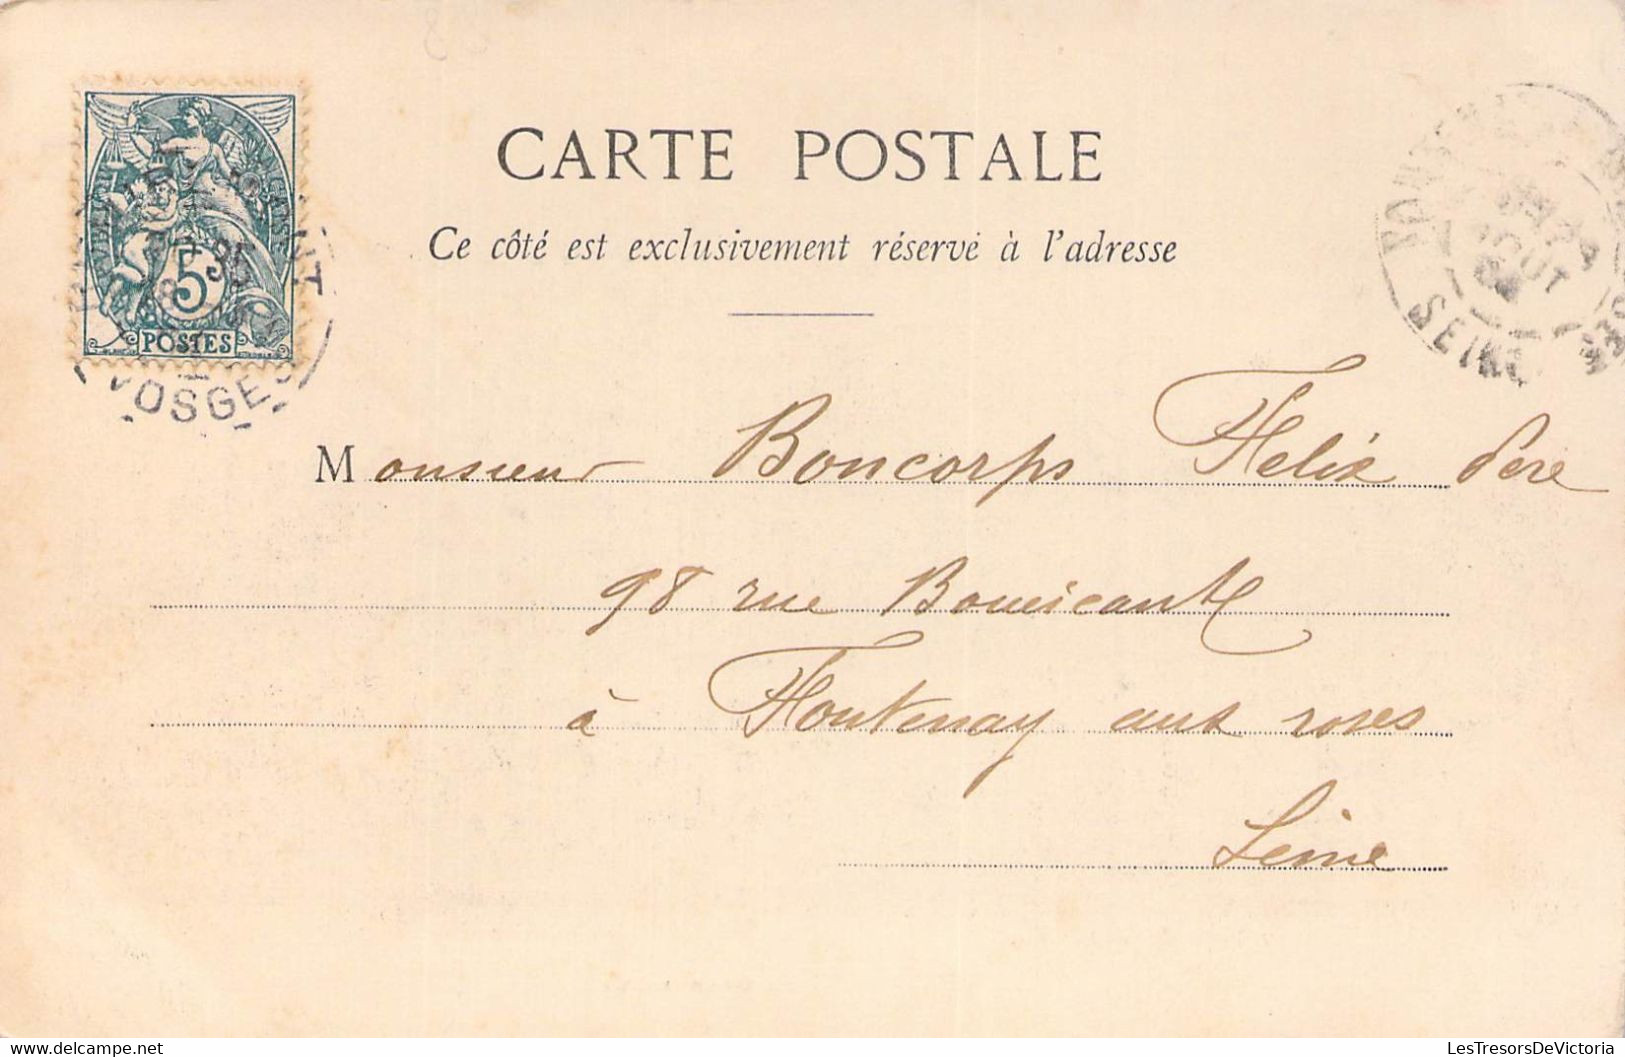 CARTE POSTALE
Ce côté est exclusivement réservé à l'adresse
POSTES
5
VOSGES
SEINE
Monsieur Boncorps Felix Pere
98 rue Boucicant
à Fontenay aux roses
Seine
LesTresorsDeVictoria